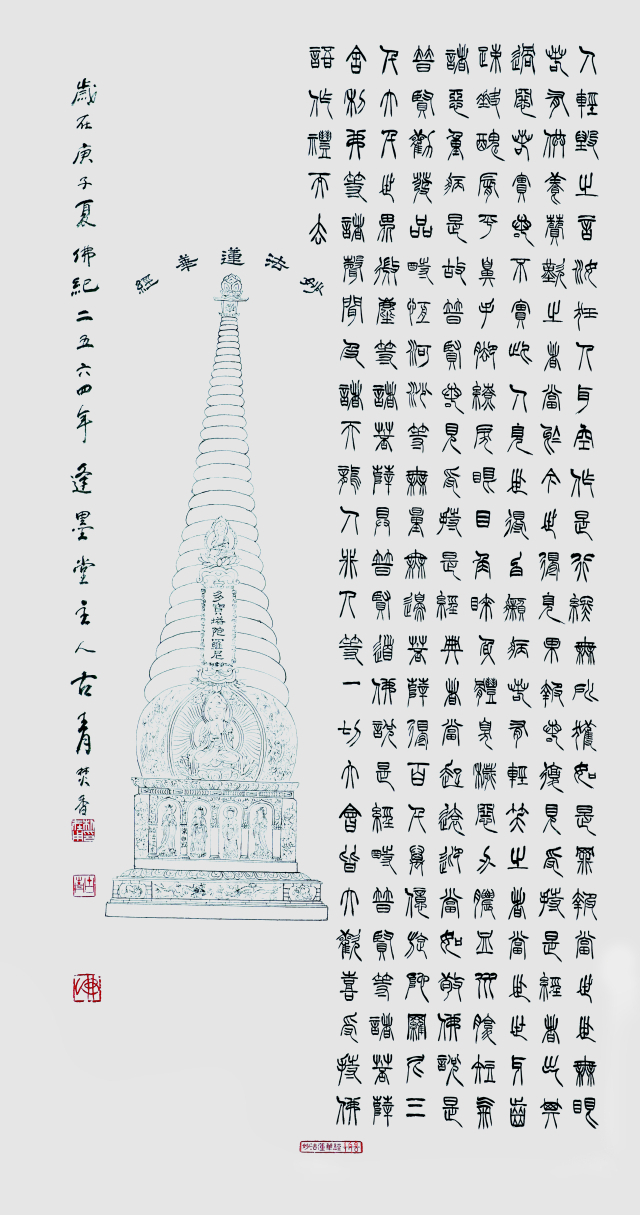 人輕毀之言汝狂人耳空作是行終無所獲如是罪報當世世無眼
若有供養讚歎之者當於今世得現果報若復見受持是經者出其
過惡若實若不實此人現世得白癩病若有輕笑之者當世世牙齒
疎缺醜脣平鼻手腳繚戾眼目角睞身體臭穢惡瘡膿血水腹短氣
諸惡重病是故普賢若見受持是經典者當起遠迎當如敬佛說是
普賢勸發品時恒河沙等無量無邊菩薩得百千萬億旋陀羅尼三
千大千世界微塵等諸菩薩具普賢道佛說是經時普賢等諸菩薩
舍利弗等諸聲聞及諸天龍人非人等一切大會皆大歡喜受持佛
語作禮而去
妙法蓮華經
多寶塔陀羅尼
歲在庚子夏佛紀二五六四年逢墨堂主人古青焚香